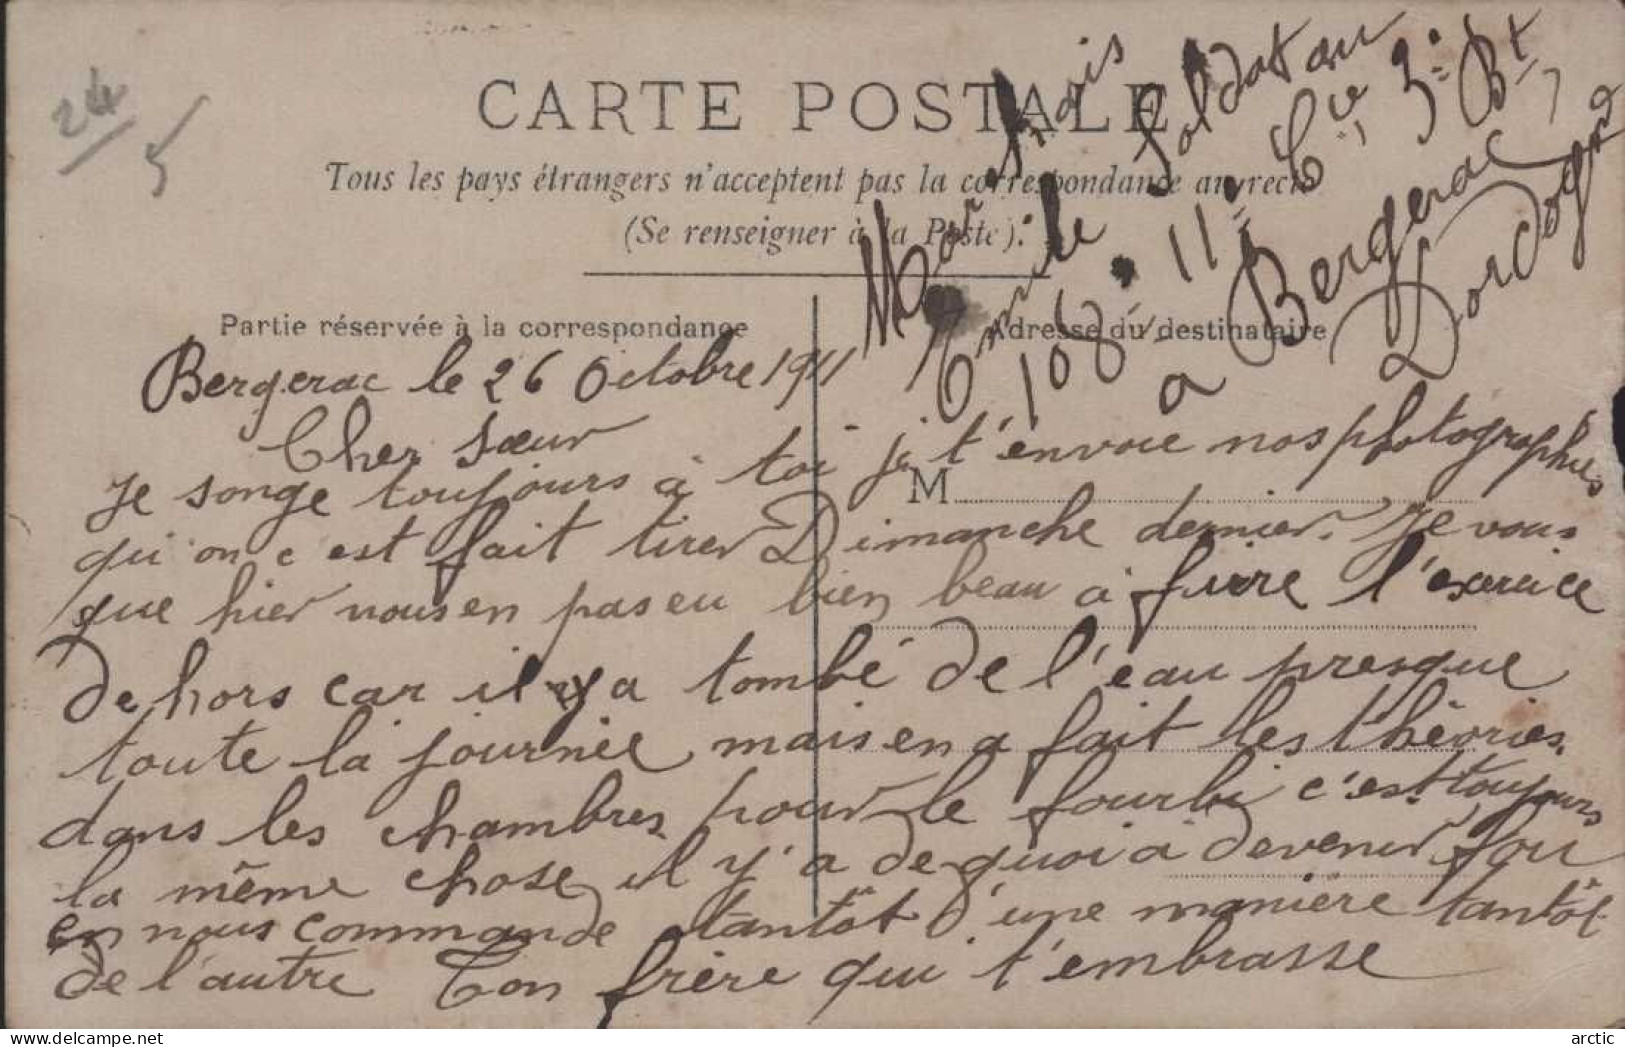 24
5
CARTE POSTALE
Tous les pays étrangers n'acceptent pas la correspondance au recto
(Se renseigner à la Poste).
Partie réservée à la correspondance
Adresse du destinataire
M
Emile Soldat au
108e 11e Cie 3e Bt
a Bergerac
Dordogne
Bergerac le 26 Octobre 1911
Cher sœur
Je songe toujours à toi je t'envoie nos photographies
qu'on c est fait tirer Dimanche dernier. Je vous
que hier nous en pas eu bien beau à faire l'exercice
dehors car il y a tombé de l'eau presque
toute la journée mais en a fait les théories
dans les chambres pour le fourbi c'est toujours
la même chose il y'a de quoi a devenir fou
en nous commande tantôt d'une manière tantôt
de l'autre Ton frère qui t'embrasse
arctic